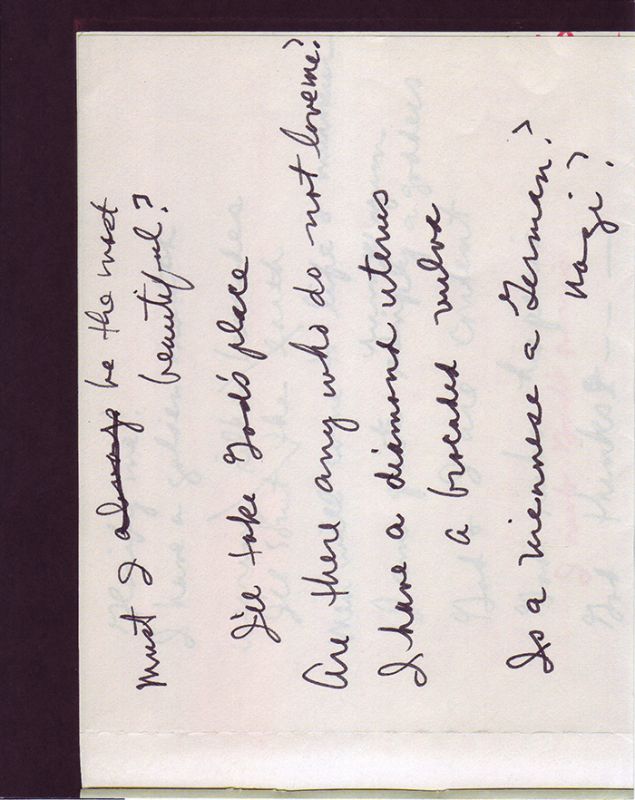 Must I always be the most
beautiful?
I'll take God's place
Are there any who do not love me?
I have a diamond uterus
a brocaded vulva
Is a Viennese a German?
Nazi?